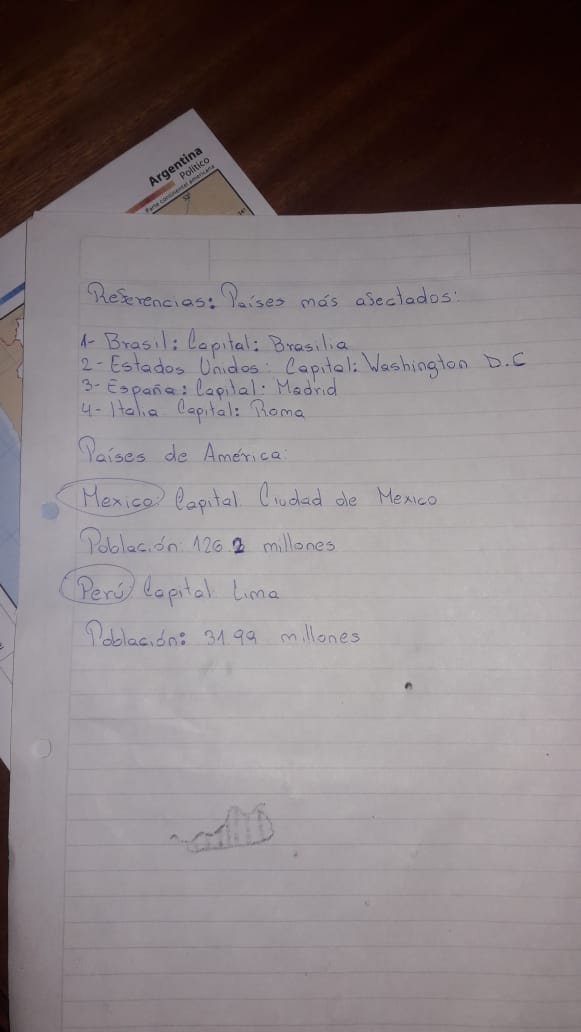 Argentina
Político
Parte continental americana
Referencias: Países más afectados:
1- Brasil: Capital: Brasilia
2- Estados Unidos: Capital: Washington D.C
3- España: Capital: Madrid
4- Italia Capital: Roma
Países de América:
Mexico: Capital Ciudad de Mexico
Población 126 2 millones
Perú Capital Lima
Población: 31 99 millones